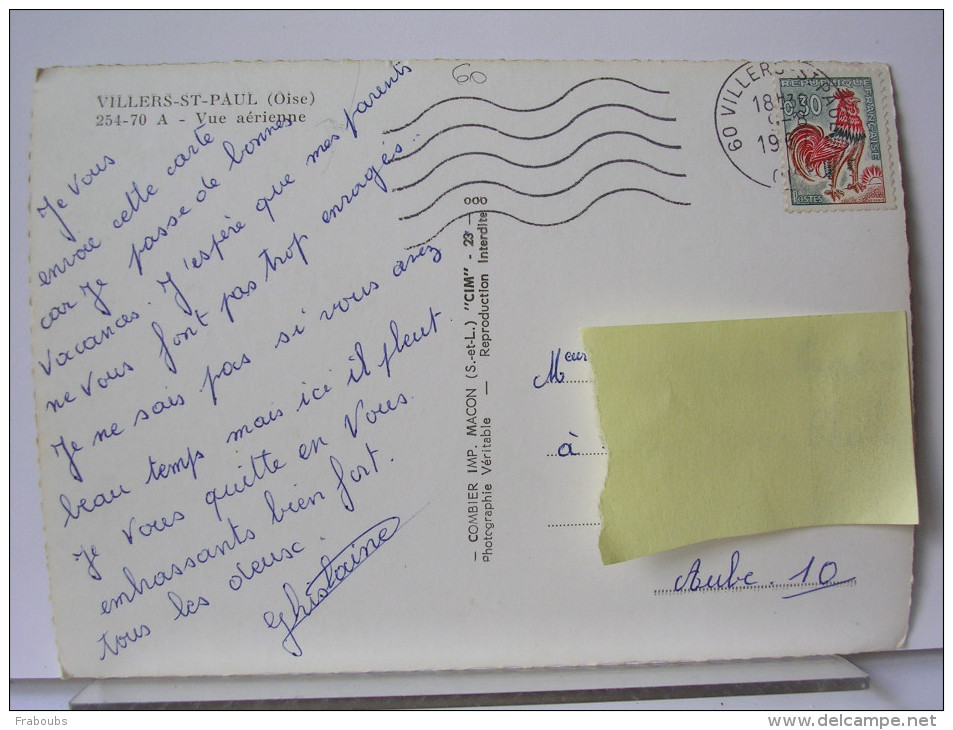 VILLERS-ST-PAUL (Oise)
254-70 A - Vue aérienne
60
Je Vous
envoie cette carte
car Je passe de bonnes
Vacances. J'espère que mes parents
ne Vous font pas trop enragés..
Je ne sais pas si vous avez
beau temps mais ici il pleut.
Je Vous quitte en Vous
embrassants bien fort.
tous les deusc.
Ghislaine
— COMBIER IMP. MACON (S.-et-L.) "CIM" - 23 - 000
Photographie Véritable — Reproduction Interdite
60 VILLERS-ST-PAUL
18H
19
REPUBLIQUE FRANÇAISE
0,30
POSTES
Meur
à
Aube. 10
Fraboubs
www.delcampe.net